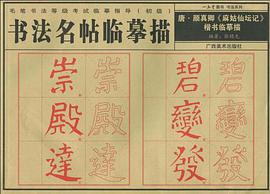 毛笔书法等级考试临摹指导（初级）
书法名帖临摹描
唐·颜真卿《麻姑仙坛记》
楷书临摹描
广西美术出版社
崇 崇 碧 碧
殿 殿 變 變
達 達 發 發